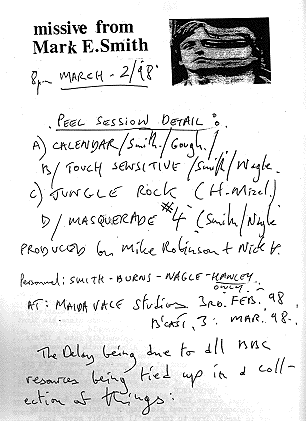 missive from
Mark E. Smith
8pm MARCH - 2/98.
PEEL SESSION DETAIL:
A) CALENDAR/Smith/Gough/
B/ TOUCH SENSITIVE /Smith/Nagle.
C) JUNGLE ROCK (H-Mizel)
D/ MASQUERADE #4 (Smith/Nagle
PRODUCED by Mike Robinson + Nick
Personnel: SMITH - BURNS - NAGLE - HANLEY
ONLY
AT: MAIDA VALE Studios 3RD. FEB. 98
B'CAST, 3: MAR. '98.
The Delay being due to all BBC
resources being tied up in a coll-
ection of things: